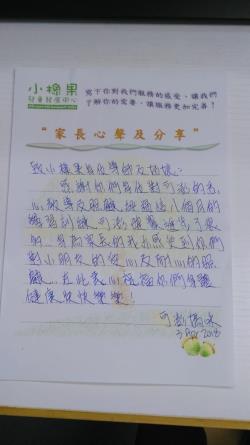 小橡果
兒童發展中心
寫下你對我們服務的感受，讓我們
了解你的需要，讓服務更加完善！
"家長心聲及分享"
致小橡果各位導師及姑娘：
感謝你們各位對可澄的悉
心教導及照顧，經過這八個月的
練習訓練，可澄確實進步了很
的，身為家長的我也感受到你們
對小朋友的愛心及耐心的照
顧，在此衷心祝福你們身體
健康快快樂樂！
3 Apr 2018